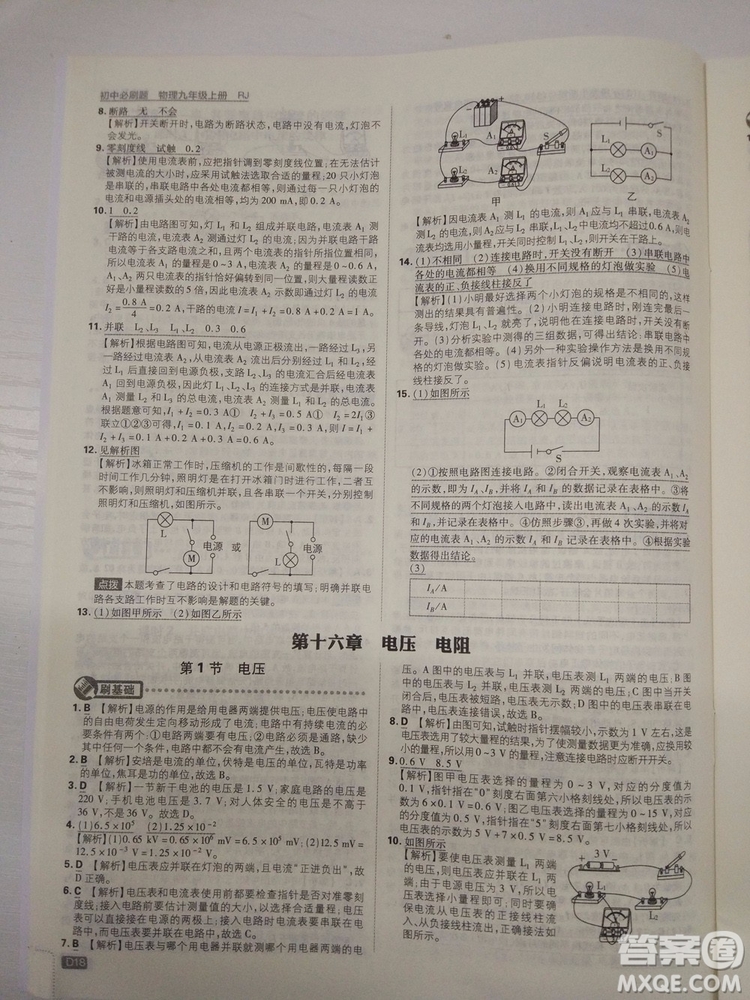 初中必刷题 物理九年级上册 RJ
8. 断路 无 不会
【解析】开关断开时，电路为断路状态，电路中没有电流，灯泡不
会发光。
9. 零刻度线 试触 0.2
【解析】使用电流表前，应把指针调到零刻度线位置，在无法估计
被测电流的大小时，应采用试触的方法选择量程；20 只小灯泡
是串联的，串联电路中各处电流都相等，则通过每一只小灯泡的
电流和电源插头处的电流相等，均为 200 mA，即 0.2 A。
10. 1 0.2
【解析】由电路图可知，灯 L₁ 和 L₂ 组成并联电路，电流表 A₁ 测
干路的电流，电流表 A₂ 测通过灯 L₁ 的电流，因为并联电路干路
电流等于各支路电流之和，且两个电流表的指针所指位置相同，
所以电流表 A₁ 的量程是 0~3 A，电流表 A₂ 的量程是 0~0.6 A，
A₁、A₂ 两只电流表的指针恰好偏转到同一位置，则大量程读数正
好是小量程读数的 5 倍，因此电流表 A₂ 示数即通过 L₁ 的电流
I₁ = 0.8 A/4 = 0.2 A，干路的电流 I = I₁ + I₂ = 0.2 A + 0.8 A = 1 A。
11. 并联 L₂、L₃ 0.3 0.6
【解析】根据电路图可知，电流从电源正极流出后，一路经过 L₁
回到电源负极，一路经过 L₂、电流表 A₁ 回到电源负极，一路经
过 L₃ 后回到电源负极，因此灯 L₁、L₂、L₃ 的连接方式是并联，电
流表 A₁ 测量 L₂、L₃ 的总电流，电流表 A₂ 测量 L₁、L₂ 的总电流。
根据题意可知，I₁ + I₂ = 0.3 A① I₂ + I₃ = 0.4 A② I₁ + I₂ + I₃ = 0.6 A③
联立①②③可得，I₁ = 0.2 A，I₂ = 0.1 A，I₃ = 0.3 A。
12. 见解析图
【解析】冰箱正常工作时，压缩机的工作是间歇性的，每隔一段
时间工作几分钟，照明灯是在打开冰箱门时进行工作，二者互
不影响，说明照明灯和压缩机并联，且都有一个开关，分别控制
照明灯和压缩机，如图所示。
L M 电源 或 M L 电源
点拨 本题考查了电路的设计和电路符号的填写；明确并联电
路各支路工作时互不影响是解题的关键。
13. (1)如图甲所示 (2)如图乙所示
L₁ A₁ S L₂ A₂ 甲
S L₁ A₁ L₂ A₂ 乙
【解析】因电流表 A₁ 测 L₁ 的电流，所以 A₁ 应与 L₁ 串联，电流表 A₂
测 L₂ 的电流，所以 A₂ 应与 L₂ 串联；因 L₁、L₂ 中电流均不超过 0.6 A，两
电流表均选小量程；开关同时控制两灯，所以开关在干路上。
14. (1)不相同 (2)连接电路时，开关没有断开 (3)串联电路中
各处的电流都相等 (4)换用不同规格的灯泡做实验 (5)电
流表的正、负接线柱接反了
【解析】(1)小明最好选择两个小灯泡的规格是不相同的，这样
测出的结果具有普遍性。(2)小明连接电路时，刚连完最后一
条导线，灯泡 L₁、L₂ 就亮了，说明在实验前没有断开开关。
(3)分析实验中所测得的三组数据，可得出结论：串联电路中
各处的电流都相等。(4)另外一种实验操作方法是换用不同规
格的灯泡做实验。(5)电流表指针反偏说明电流表的正、负接
线柱接反了。
15. (1)如图所示
A₁ L₁ L₂ A₂ S
(2)①按照电路图连接电路。②闭合开关，观察电流表 A₁、A₂
的示数，即为 I_A、I_B，并将 I_A 和 I_B 的数据记录在表格中。③将
不同规格的两个灯泡接入电路中，读出两个电流表的示数 I_A 和
I_B，并记录在表格中。④仿照步骤③，再做 4 次实验，共得到 6
组 I_A 和 I_B 的数据，并记录在表格中。⑤断开开关。⑥根据实验
数据得出结论。
(3)
I_A/A
I_B/A
第十六章 电压 电阻
第 1 节 电压
刷基础
1. B 【解析】电源的作用是给用电器两端提供电压；电压使电路中
的自由电荷发生定向移动形成了电流；电路中有持续电流的必
要条件：①电路两端要有电压，②电路是通路，两个条件缺少其
中任何一个条件，电路中都不会有电流产生，所以选 B。
2. B 【解析】安培是电流的单位，伏特是电压的单位，瓦特是功率的
单位，千克是质量的单位，所以选 B。
3. D 【解析】一节新干电池的电压是 1.5 V，家庭电路的电压是
220 V，手机电池电压是 3.7 V，对人体安全的电压是不高于
36 V，不是一定为 36 V。故选 D。
4. (1)6.5×10⁵ (2)1.25×10⁻²
【解析】(1)0.65 kV = 0.65×10⁶ mV = 6.5×10⁵ mV；(2)12.5 mV =
12.5×10⁻³ V = 1.25×10⁻² V。
5. D 【解析】电压表应并联在灯泡的两端，且电流“正进负出”，故
选 D。
6. C 【解析】电压表和电流表使用前都要检查指针是否对准零刻
度线；使用时，都要选择合适的量程，且都要让电流从正接线柱
流入；电压表可以直接接在电源的两极上，此时测量的是电源
电压，但电流表不可以。故选 C。
7. B 【解析】电压表与哪个用电器并联就测哪个用电器两端的电
压。A 图中的电压表与 L₁ 并联，电压表测 L₁ 两端的电压；B 图
中的电压表与 L₂ 并联，电压表测 L₂ 两端的电压；C 图中当开关
闭合后，电压表与灯泡都被短接，电压表无示数；D 图中
电压表连接错误，故选 B。
8. D 【解析】由图可知，试触时指针摆幅较小，示数小于 1 V 左右，这是
选用了较大量程的结果，为了使测量数据更准确，应换小
量程进行测量。注意连接电路时应断开开关。
9. 0.6 V 8.5 V
【解析】图甲电压表选择的量程为 0~3 V，对应的分度值为
0.1 V，指针在“0”刻度右面第六小格刻线处，所以电压表的示数
为 0.1 V×6 = 0.6 V；图乙电压表选择的量程为 0~15 V，对应的
分度值为 0.5 V，指针在“5”刻度右面第七小格刻线处，所以电压
表的示数为 5 V + 7×0.5 V = 8.5 V。
10. 如图所示
【解析】电压表要测量 L₁ 两端
的电压，应将电压表与 L₁ 并
联；由于电源电压为 3 V，因此
电压表应选择小量程；同时要
确保电流从电压表的正接线柱
流入，负接线柱流出，如图
所示。
3 V L₁ L₂
D18
答案圈
MXQE.COM